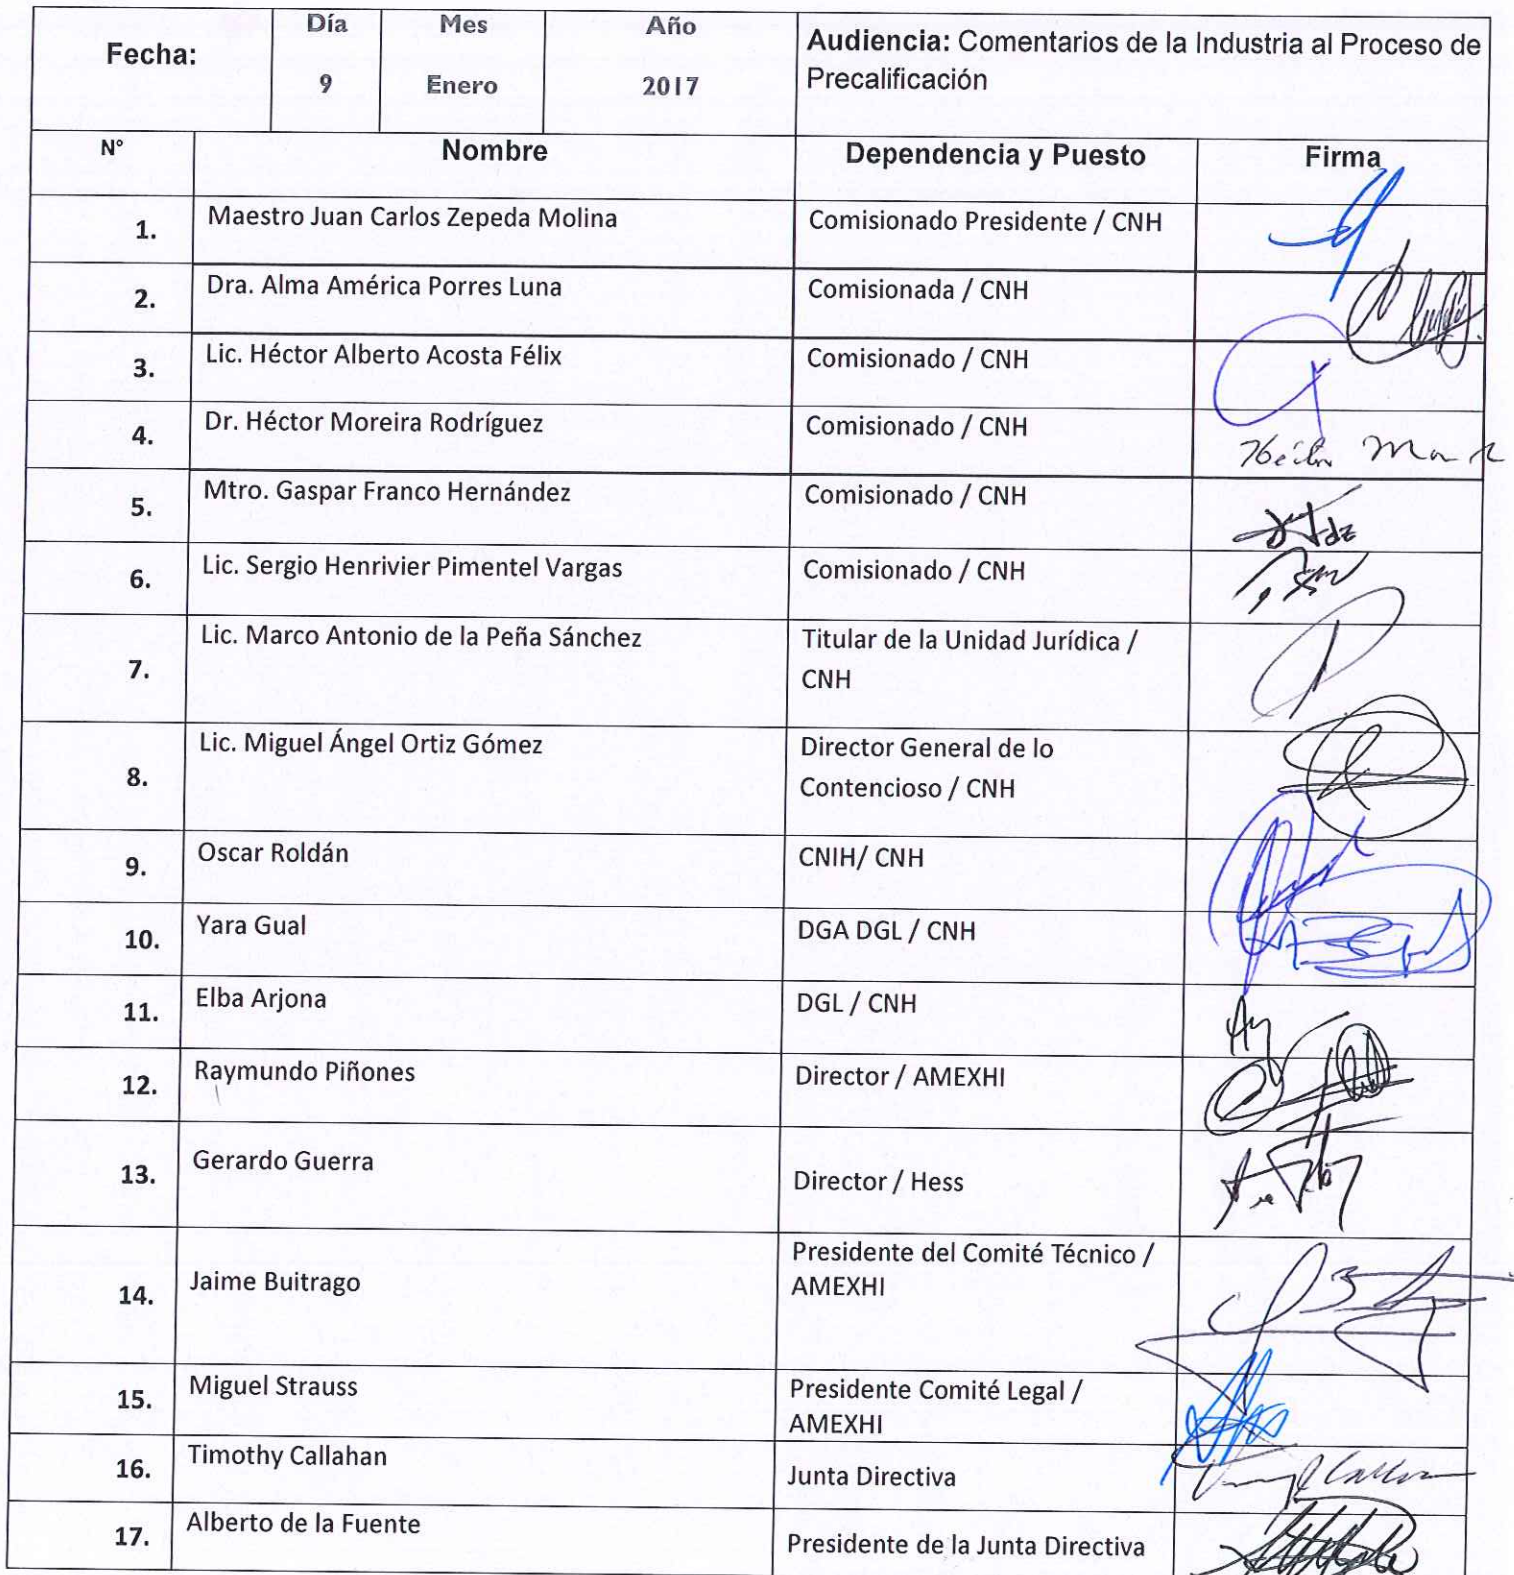 Fecha: Día Mes Año Audiencia: Comentarios de la Industria al Proceso de
9 Enero 2017 Precalificación
N° Nombre Dependencia y Puesto Firma
1. Maestro Juan Carlos Zepeda Molina Comisionado Presidente / CNH
2. Dra. Alma América Porres Luna Comisionada / CNH
3. Lic. Héctor Alberto Acosta Félix Comisionado / CNH
4. Dr. Héctor Moreira Rodríguez Comisionado / CNH
5. Mtro. Gaspar Franco Hernández Comisionado / CNH
6. Lic. Sergio Henrivier Pimentel Vargas Comisionado / CNH
7. Lic. Marco Antonio de la Peña Sánchez Titular de la Unidad Jurídica /
CNH
8. Lic. Miguel Ángel Ortiz Gómez Director General de lo
Contencioso / CNH
9. Oscar Roldán CNIH/ CNH
10. Yara Gual DGA DGL / CNH
11. Elba Arjona DGL / CNH
12. Raymundo Piñones Director / AMEXHI
13. Gerardo Guerra Director / Hess
14. Jaime Buitrago Presidente del Comité Técnico /
AMEXHI
15. Miguel Strauss Presidente Comité Legal /
AMEXHI
16. Timothy Callahan Junta Directiva
17. Alberto de la Fuente Presidente de la Junta Directiva